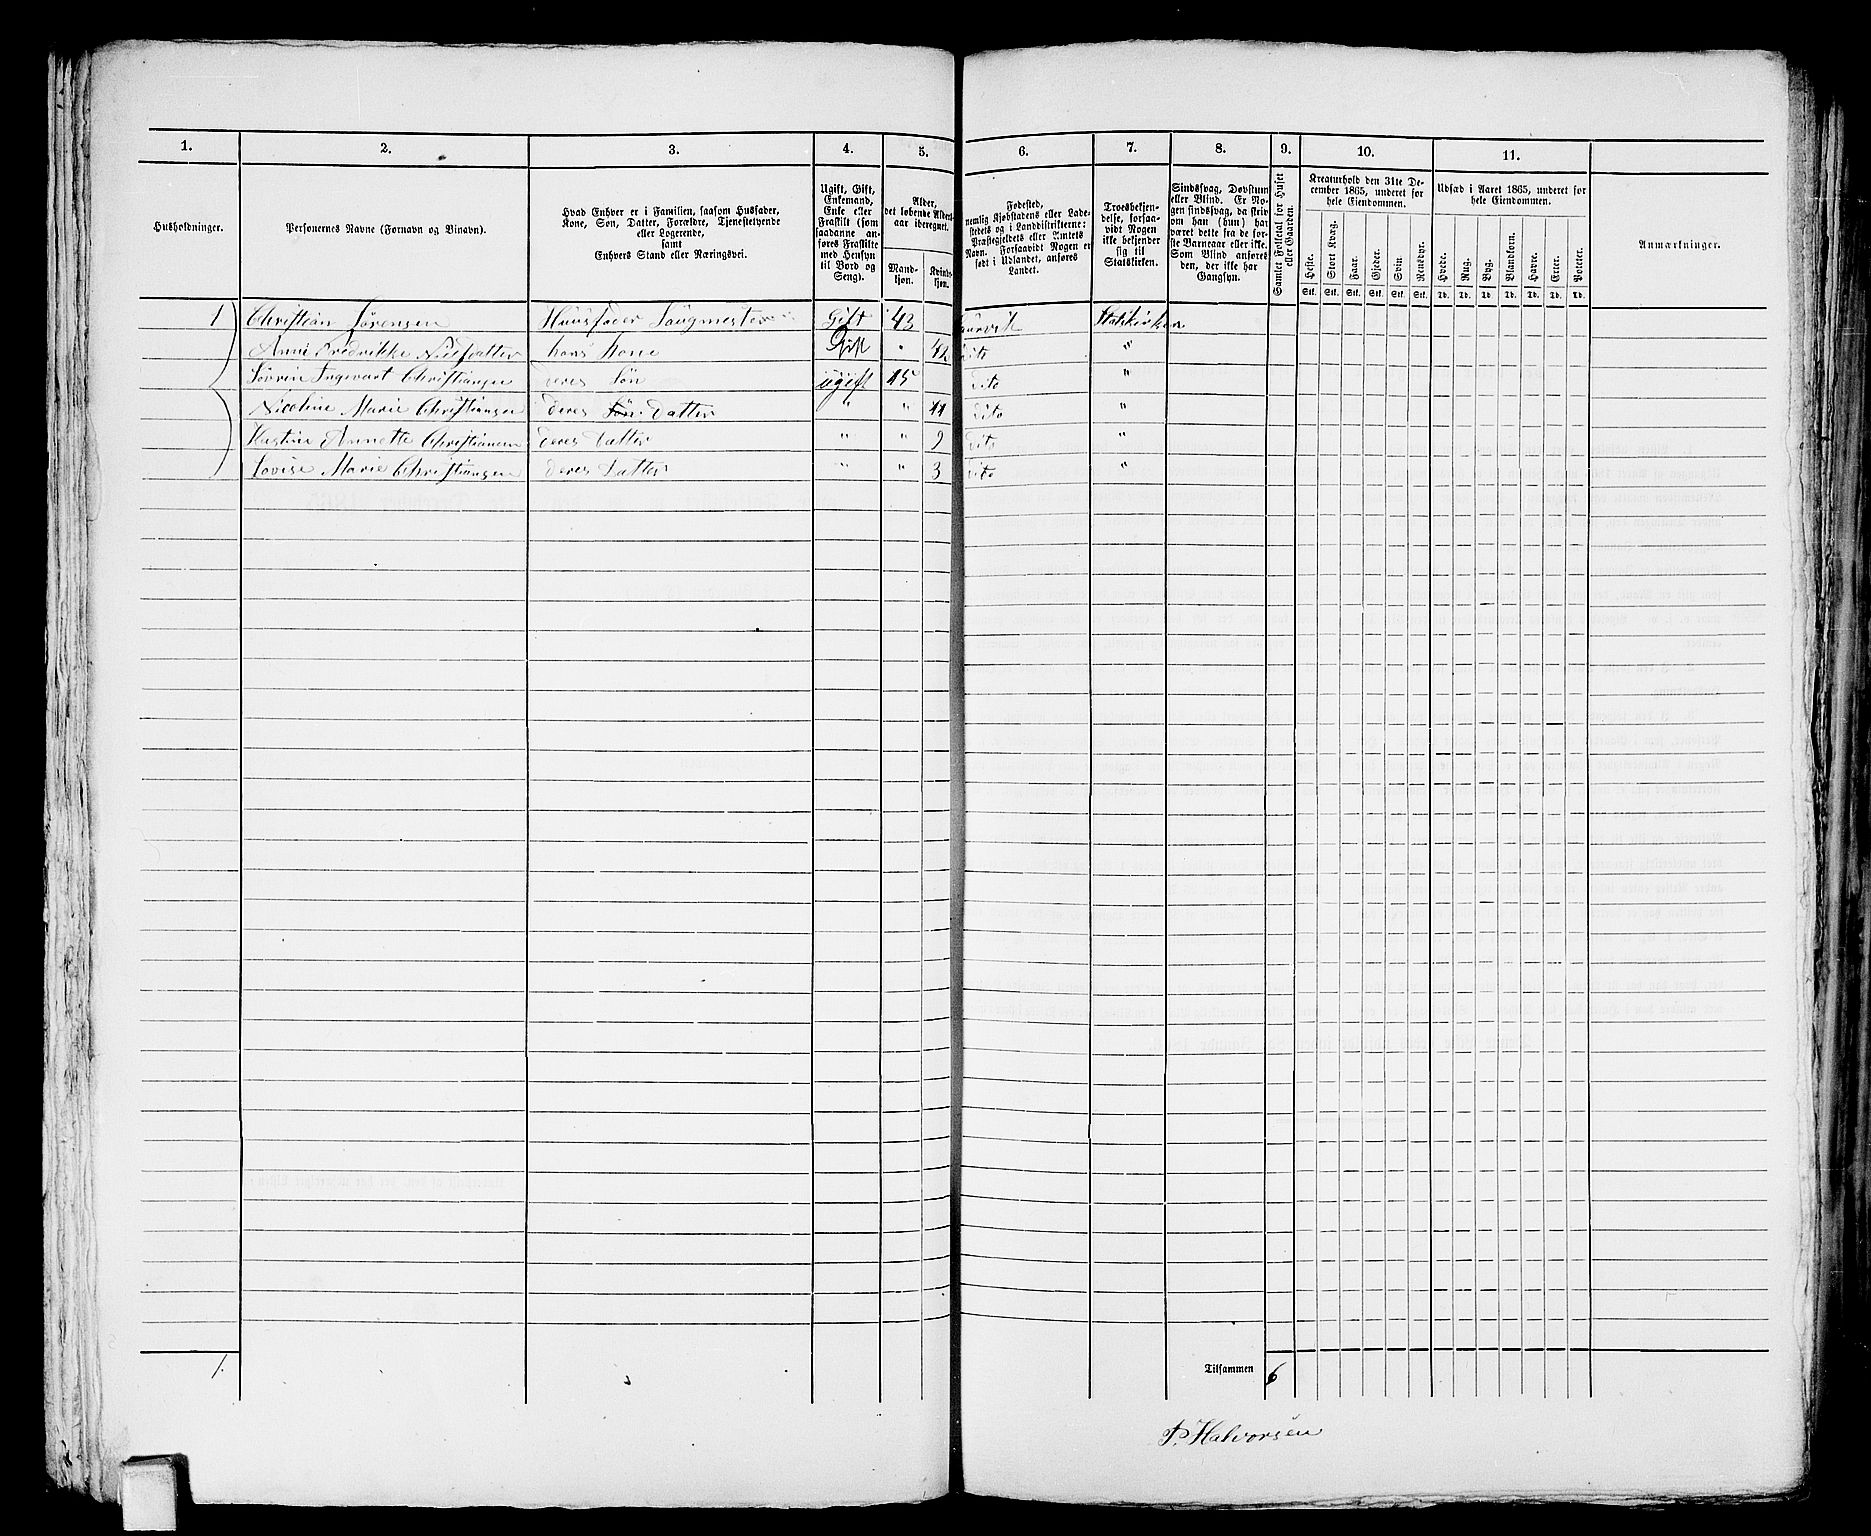 1. 2. 3. 4. 5. 6. 7. 8. 9. 10. 11.
Husholdninger.
Personernes Navne (Fornavn og Binavn).
Hvad Enhver er i Familien, saasom Husfader,
Kone, Søn, Datter, Forældre, Tjenestetyende
eller Logerende,
samt
Enhvers Stand eller Næringsvei.
Ugift, Gift,
Enkemand,
Enke eller
Fraskilt (som
saadanne an-
føres Fraskilte
med Hensyn
til Bord og
Seng).
Alder,
det løbende Alders-
aar iberegnet.
Mand-
kjøn.
Kvind-
kjøn.
Fødested,
nemlig Kjøbstadens eller Lade-
stedets og i Landdistrikterne:
Præstegjeldets eller Amtets
Navn. Forsaavidt Nogen er
født i Udlandet, anføres
Landet.
Troesbekjen-
delse, forsaa-
vidt Nogen
ikke bekjender
sig til
Statskirken.
Sindssvag, Døvstum
eller Blind. Er No-
gen sindssvag, da skriv
om han (hun) har
været dette fra de før-
ste Barneaar eller ikke.
Som Blind anføres
den, der ikke har
Gangsyn.
Samlet Folketal for Huset
eller Gaarden.
Kreaturhold den 31te De-
cember 1865, underet for
hele Eiendommen.
Heste. Stort Kvæg. Faar. Gjeder. Svin. Rensdyr.
Stk. Stk. Stk. Stk. Stk. Stk.
Udsæd i Aaret 1865, underet for
hele Eiendommen.
Hvede. Rug. Byg. Blandkorn. Havre. Erter. Poteter.
Td. Td. Td. Td. Td. Td. Td.
Anmærkninger.
1 Christian Sørensen Huusfader Saugmester Gift 43 Laurvik Statskirken
Anne Fredrikke Nilsdatter hans kone Gift " 42 dito "
Sørrin Ingevart Christiansen deres Søn ugift 15 dito "
Nicoline Marie Christiansen deres Søn Datter " " 11 dito "
Annette Christiansen deres Datter " " 9 dito "
Lovise Marie Christiansen deres Datter " " 3 dito "
1. Tilsammen 6
P. Halvorsen